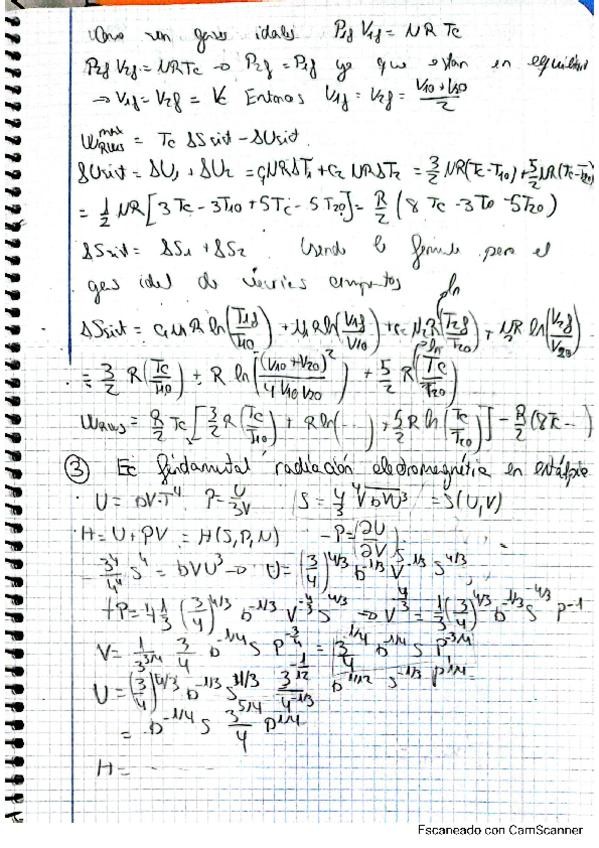 Como son gases idales P1f V1f = NR Tc
P2f V2f = NRTc → P2f = P1f ya que estan en equilibrio
→ V1f = V2f = Vc Entonces V1f = V2f = (V10 + V20)/2
W_RWS^max = Tc ΔSsist - ΔUsist.
ΔUsist = ΔU1 + ΔU2 = c1NRΔT1 + c2 NRΔT2 = 3/2 NR(Tc-T10) + 5/2 NR(Tc-T20)
= 1/2 NR [3Tc - 3T10 + 5Tc - 5T20] = R/2 (8 Tc - 3T0 - 5T20)
ΔSsist = ΔS1 + ΔS2 Usando la formula para el
gas idel de
ln
ΔSsist = c1 N R ln(T1f/T10) + N R ln(V1f/V10) + c2 N2 R (T2f/T20) + NR ln(V2f/V20)
= 3/2 R(Tc/T10) + R ln((V10+V20)²/4 V10 V20) + 5/2 R ln(Tc/T20)
W_RWS = R/2 Tc [3/2 R(Tc/T10) + R ln(...) + 5/2 R ln(Tc/T20)] - R/2 (8Tc ...)
③ Ec fundamental radiación electromagnética en entalpia
U = bV·T⁴ P = U/3V S = 4/3 ⁴√bVU³ = S(U,V)
H = U + PV = H(S,P,N) -P = (∂U/∂V)s =
3⁴/4⁴ S⁴ = bVU³ → U = (3/4)^4/3 b^-1/3 V^-1/3 S^4/3
+P = +1/3 (3/4)^4/3 b^-1/3 V^-4/3 S^4/3 → V^4/3 = 1/3 (3/4)^4/3 b^-1/3 S^4/3 P^-1
V = 1/3^3/4 3/4 b^-1/4 S P^-3/4 = 3^1/4/4 b^-1/4 S P^-3/4
U = (3/4)^4/3 b^-1/3 S^4/3 3^-1/12/4^-1/3 b^1/12 S^-1/3 P^1/4 =
= b^-1/4 S 3^5/4/4 P^1/4
H =
Escaneado con CamScanner